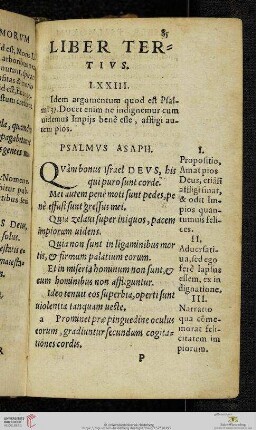 85
LIBER TER-
TIVS.
LXXIII.
Idem argumentum quod est Psal-
mi 37. Docet enim ne indignemur cum
uidemus Impijs bene esse, affligi au-
tem pios.
PSALMVS ASAPH.
Quàm bonus israel DEVS, his
qui puro sunt corde.
Mei autem penè moti sunt pedes, pe
nè effusi sunt gressus mei.
Quia zelaui super iniquos, pacem
impiorum uidens.
Quia non sunt in ligaminibus mor
tis, & firmum palatium eorum.
Et in miseria hominum non sunt, &
cum hominibus non affliguntur.
Ideo tenuit eos superbia, operti sunt
uiolentia tanquam ueste.
a Prominet præ pinguedine oculus
eorum, gradiuntur secundum cogita-
tiones cordis.
P
I.
Propositio,
Amat pios
Deus, etiãsi
affligi sinat,
& odit Im
pios quan-
tumuis feli-
ces.
II.
Aduersati-
ua, sed ego
ferè lapsus
essem, ex in
dignatione.
III.
Narratio
qua cõme-
morat feli-
citatem im
piorum.
MORVM